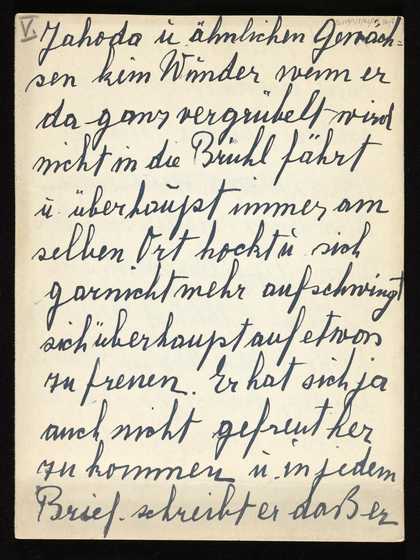 V.
Jahoda u. ähnlichen Gewäch=
sen kein Wunder wenn er
da ganz vergrübelt wird
nicht in die Brühl fährt
u. überhaupt immer am
selben Ort hockt u. sich
garnicht mehr aufschwingt
sich überhaupt auf etwas
zu freuen. Er hat sich ja
auch nicht gefreut her
zu kommen u. in jedem
Brief schreibt er daß er